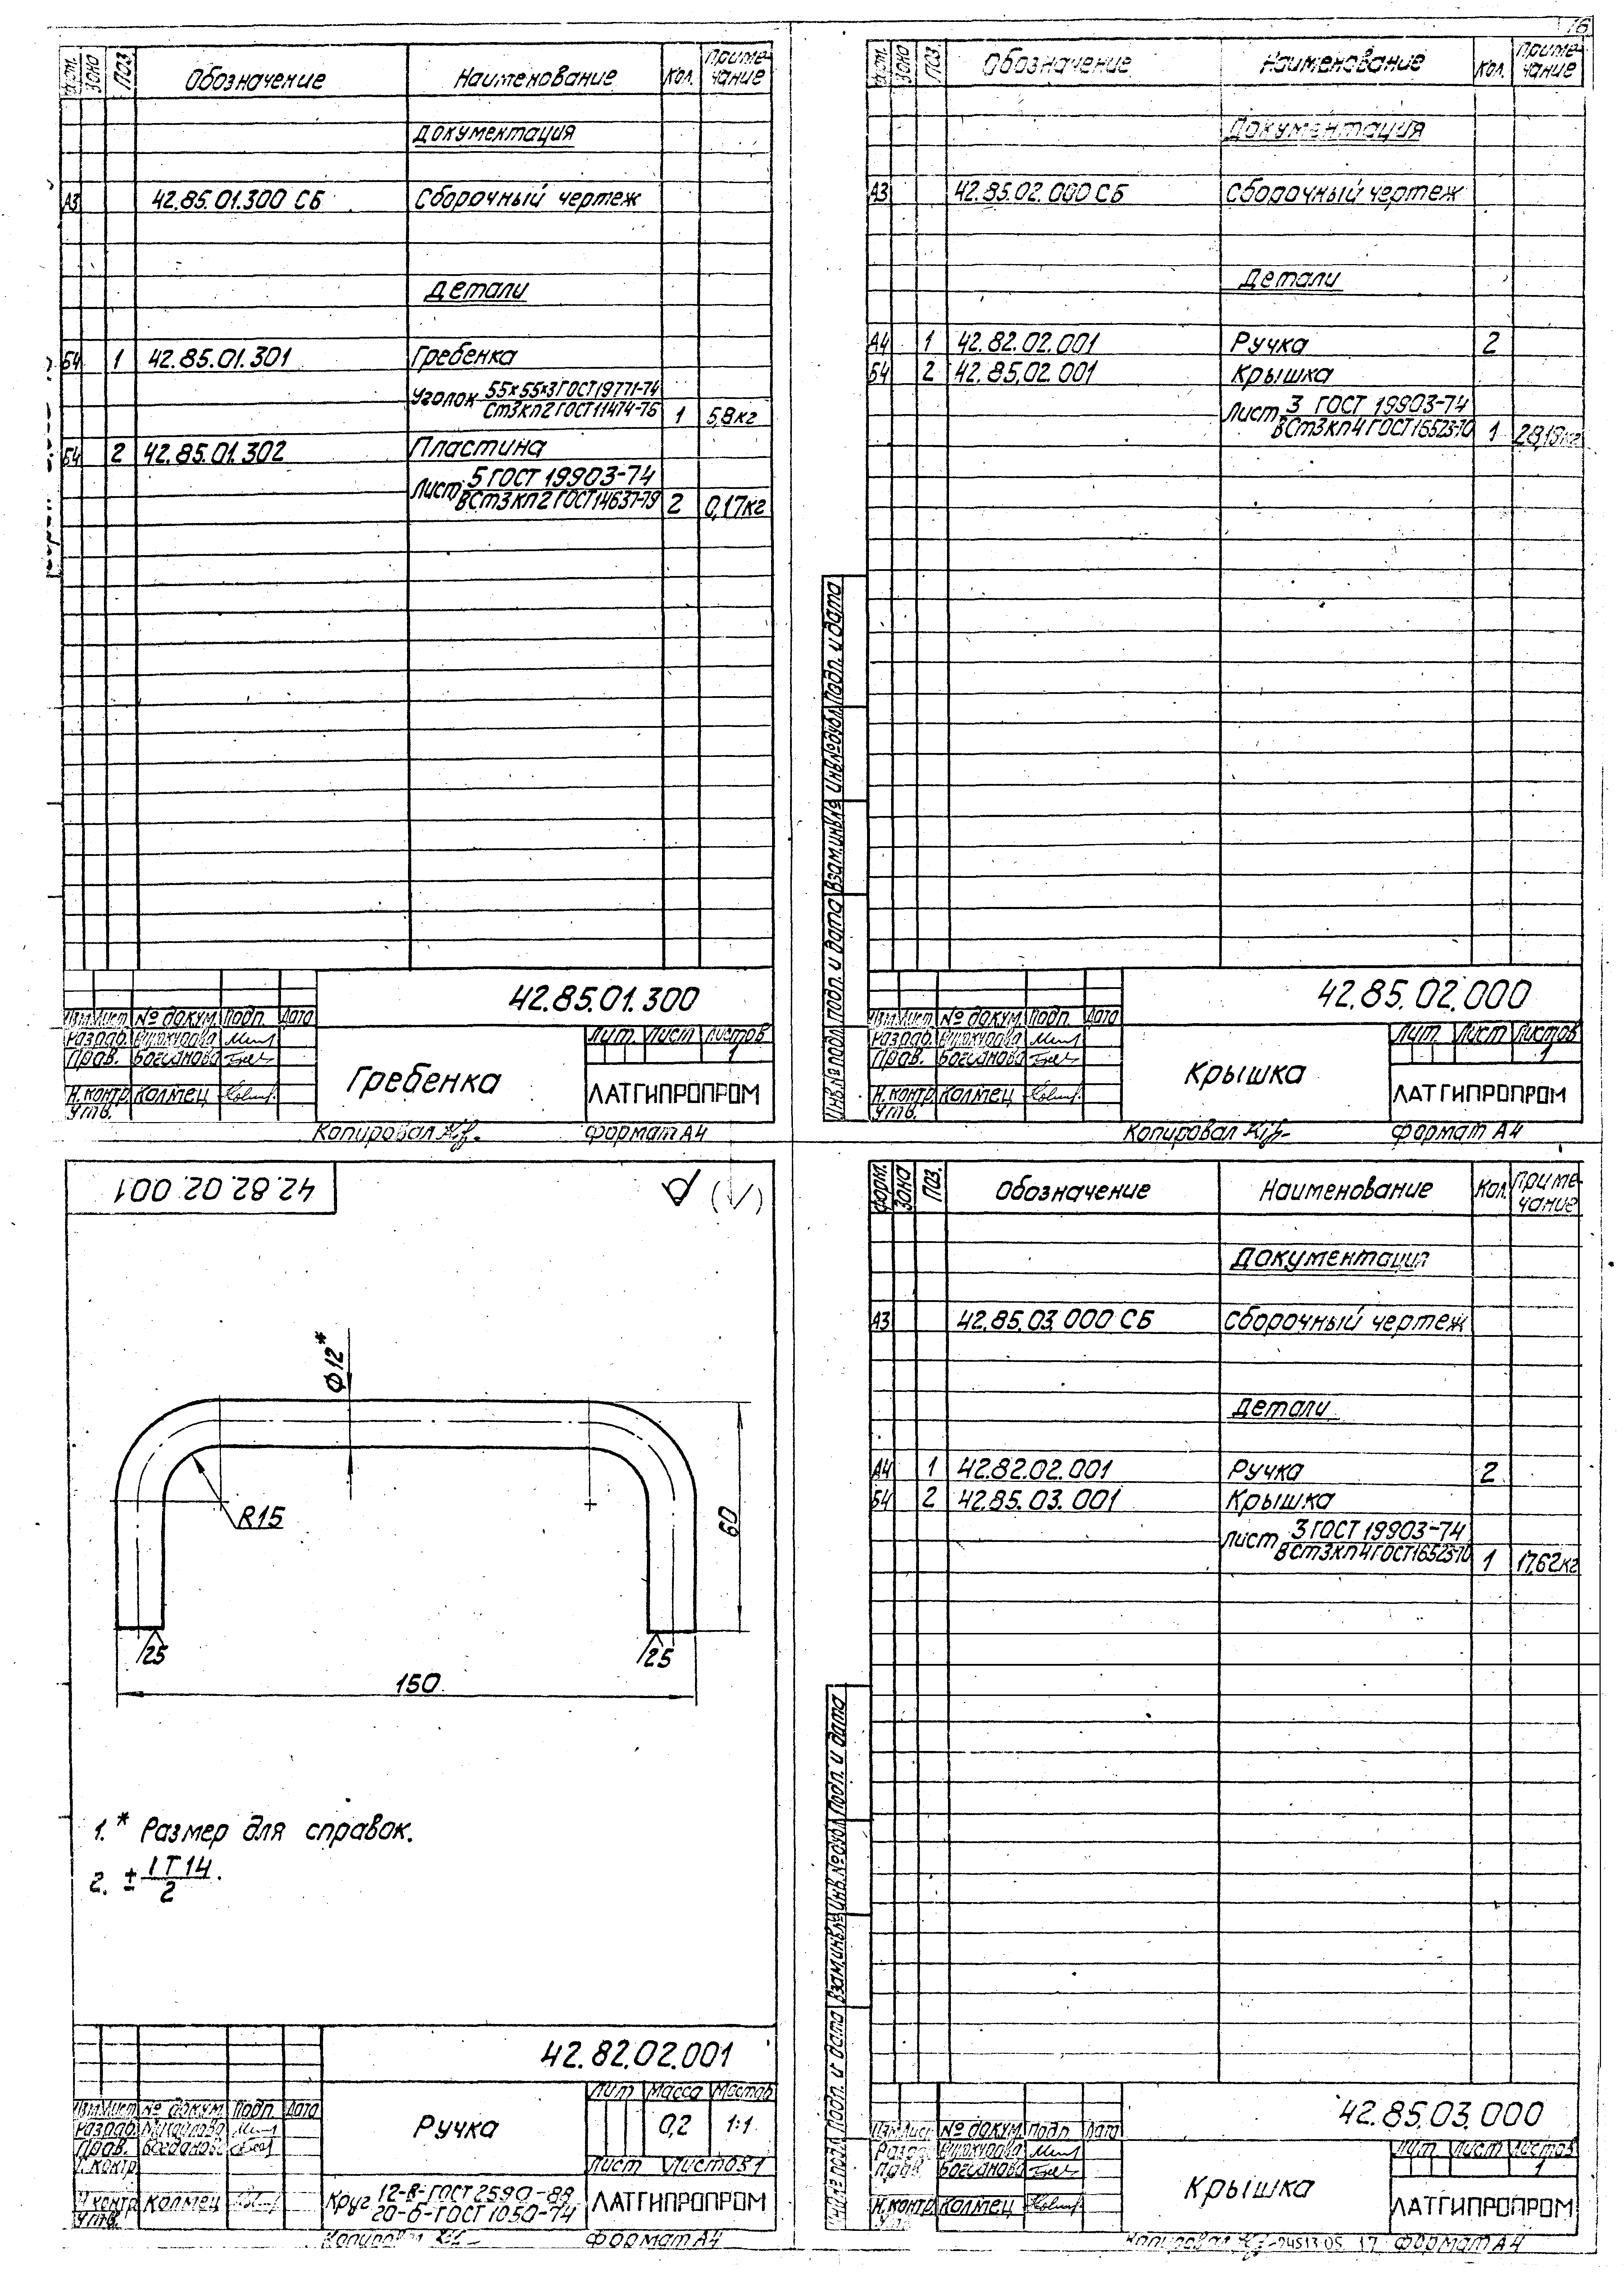 16
Форм. Зона Поз. Обозначение Наименование Кол. Приме-
чание
Документация
А3 42.85.01.300 СБ Сборочный чертеж
Детали
Б4 1 42.85.01.301 Гребенка
Уголок 55х55х3 ГОСТ 19771-74
Ст3кп2 ГОСТ 11474-76 1 5,8кг
Б4 2 42.85.01.302 Пластина
Лист 5 ГОСТ 19903-74
ВСт3кп2 ГОСТ 14637-79 2 0,17кг
42.85.01.300
Изм. Лист № докум. Подп. Дата
Разраб.
Пров. Богданова
Н.контр. Колтец
Утв.
Гребенка
Лит. Лист Листов
1
ЛАТГИПРОПРОМ
Копировал Формат А4
Форм. Зона Поз. Обозначение Наименование Кол. Приме-
чание
Документация
А3 42.85.02.000 СБ Сборочный чертеж
Детали
А4 1 42.82.02.001 Ручка 2
Б4 2 42.85.02.001 Крышка
Лист 3 ГОСТ 19903-74
ВСт3кп4 ГОСТ 16523-70 1 28,18кг
Инв.№ подл. Подп. и дата Взам.инв.№ Инв.№ дубл. Подп. и дата
42.85.02.000
Изм. Лист № докум. Подп. Дата
Разраб.
Пров. Богданова
Н.контр. Колтец
Утв.
Крышка
Лит. Лист Листов
1
ЛАТГИПРОПРОМ
Копировал Формат А4
42.82.02.001
(√)
Φ12*
R15
60
25
25
150
1.* Размер для справок.
2. ± IT14
2 .
42.82.02.001
Изм. Лист № докум. Подп. Дата
Разраб.
Пров. Богданова
Т.контр.
Н.контр. Колтец
Утв.
Ручка
Лит. Масса Масштаб
0,2 1:1
Лист Листов 1
Круг 12-В-ГОСТ 2590-88
20-б-ГОСТ 1050-74
ЛАТГИПРОПРОМ
Копировал Формат А4
Форм. Зона Поз. Обозначение Наименование Кол. Приме-
чание
Документация
А3 42.85.03.000 СБ Сборочный чертеж
Детали
А4 1 42.82.02.001 Ручка 2
Б4 2 42.85.03.001 Крышка
Лист 3 ГОСТ 19903-74
ВСт3кп4 ГОСТ 16523-70 1 17,62кг
Инв.№ подл. Подп. и дата Взам.инв.№ Инв.№ дубл. Подп. и дата
42.85.03.000
Изм. Лист № докум. Подп. Дата
Разраб.
Пров. Богданова
Н.контр. Колтец
Утв.
Крышка
Лит. Лист Листов
1
ЛАТГИПРОПРОМ
Копировал 24513.05 17 Формат А4